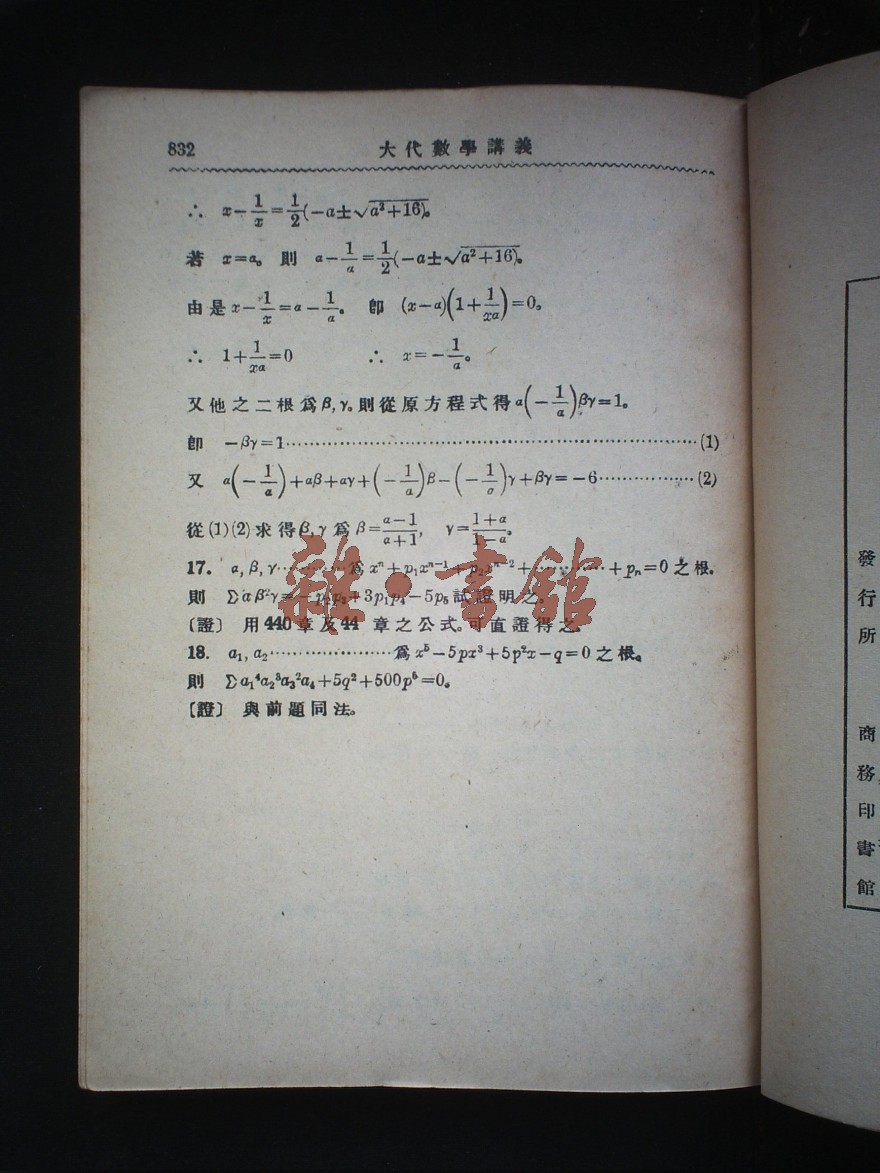 832 大代數學講義
∴ x-1/x=1/2(-a±√(a²+16))。
若 x=α。則 α-1/α=1/2(-a±√(a²+16))。
由是 x-1/x=α-1/α。 卽 (x-α)(1+1/xα)=0。
∴ 1+1/xα=0 ∴ x=-1/α。
又他之二根爲β,γ。則從原方程式得 α(-1/α)βγ=1。
卽 -βγ=1………………(1)
又 α(-1/α)+αβ+αγ+(-1/α)β-(-1/α)γ+βγ=-6………………(2)
從(1)(2)求得β,γ爲 β=α-1/α+1, γ=1+α/1-α。
17. α,β,γ…………爲 xⁿ+p₁xⁿ⁻¹+p₂xⁿ⁻²+…………+pₙ=0 之根。
則 Σαβ²γ=-p₂p₃+3p₁p₄-5p₅ 試證明之。
〔證〕 用440章及44 章之公式。可直證得之。
18. α₁,α₂…………………爲 x⁵-5px³+5p²x-q=0 之根。
則 Σα₁⁴α₂³α₃²α₄+5q²+500p⁵=0。
〔證〕 與前題同法。
雜·書館
發行所 商務印書館